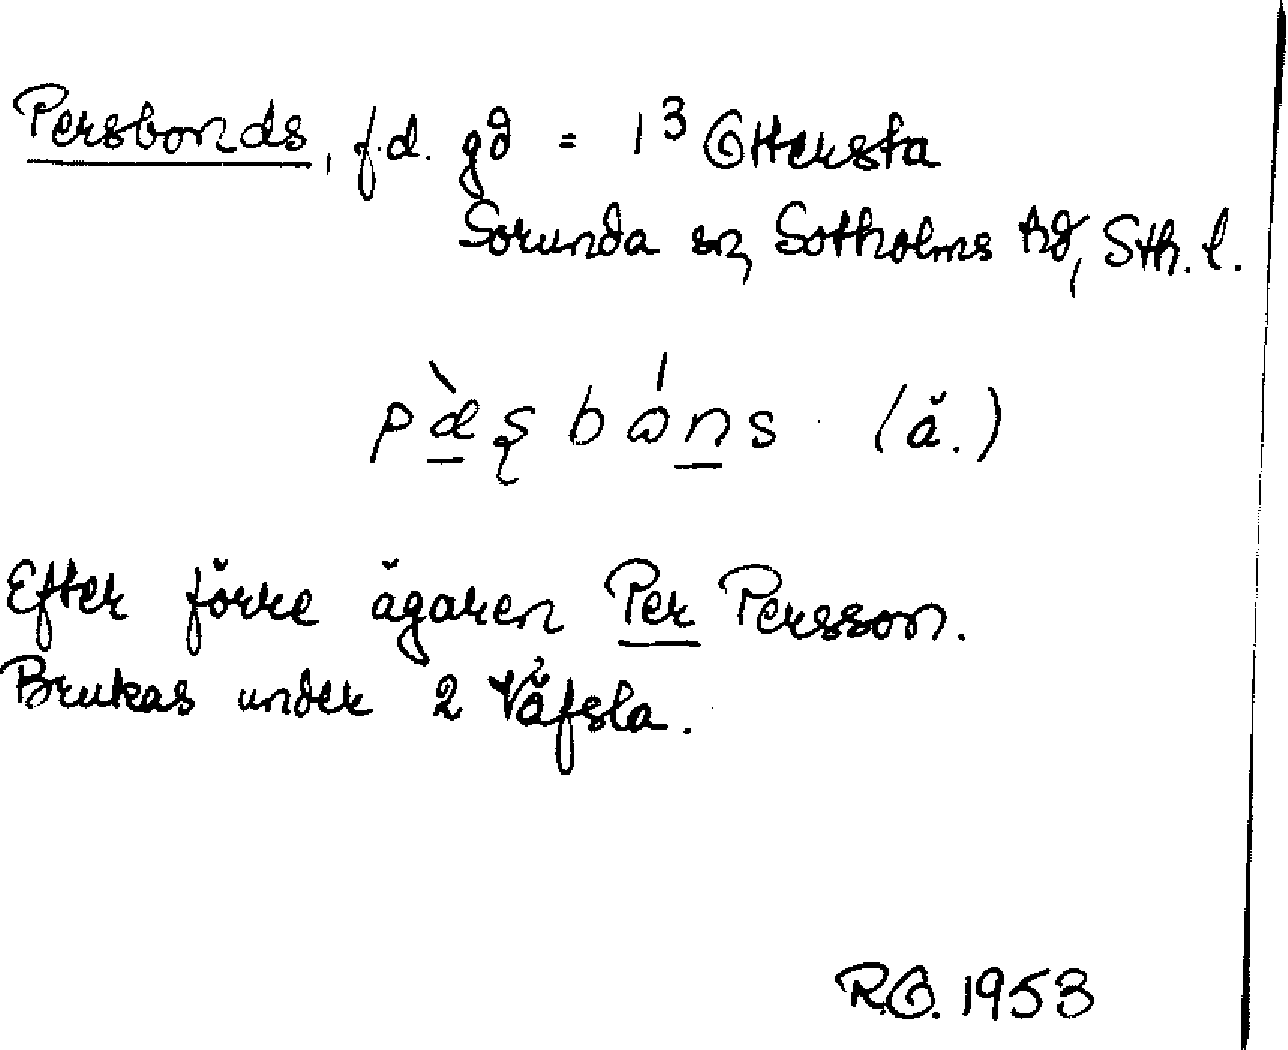 Persbonds, f.d. gd = 1³ Ottersta
Sorunda sn, Sotholms hd, Sth. l.
pæ̀ʂbɷ́ns (ä.)
Efter förre ägaren Per Persson.
Brukas under 2 Väfsla.
R.O. 1953